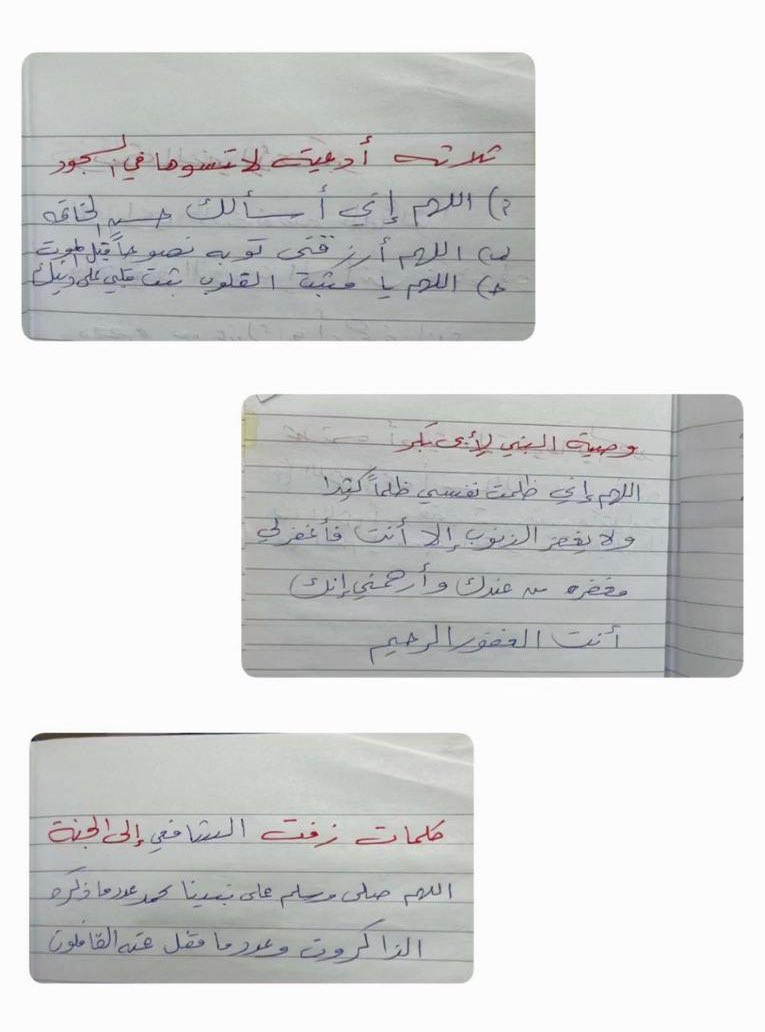 ثلاثه أدعية لا تنسوها في السجود
أ) اللهم إني أسألك حسن الخاتمه
ب) اللهم أرزقني توبه نصوحاً قبل الموت
ج) اللهم يا مثبت القلوب ثبت قلبي على دينك
وصية النبي لأبى بكر
اللهم إني ظلمت نفسي ظلماً كثيرا
ولا يغفر الذنوب إلا أنت فأغفرلي
مغفره من عندك وأرحمني إنك
أنت الغفور الرحيم
كلمات زفت الشافعي إلى الجنة
اللهم صلى وسلم على نبينا محمد عدد ما ذكره
الذاكرون وعدد ما غفل عنه الغافلون